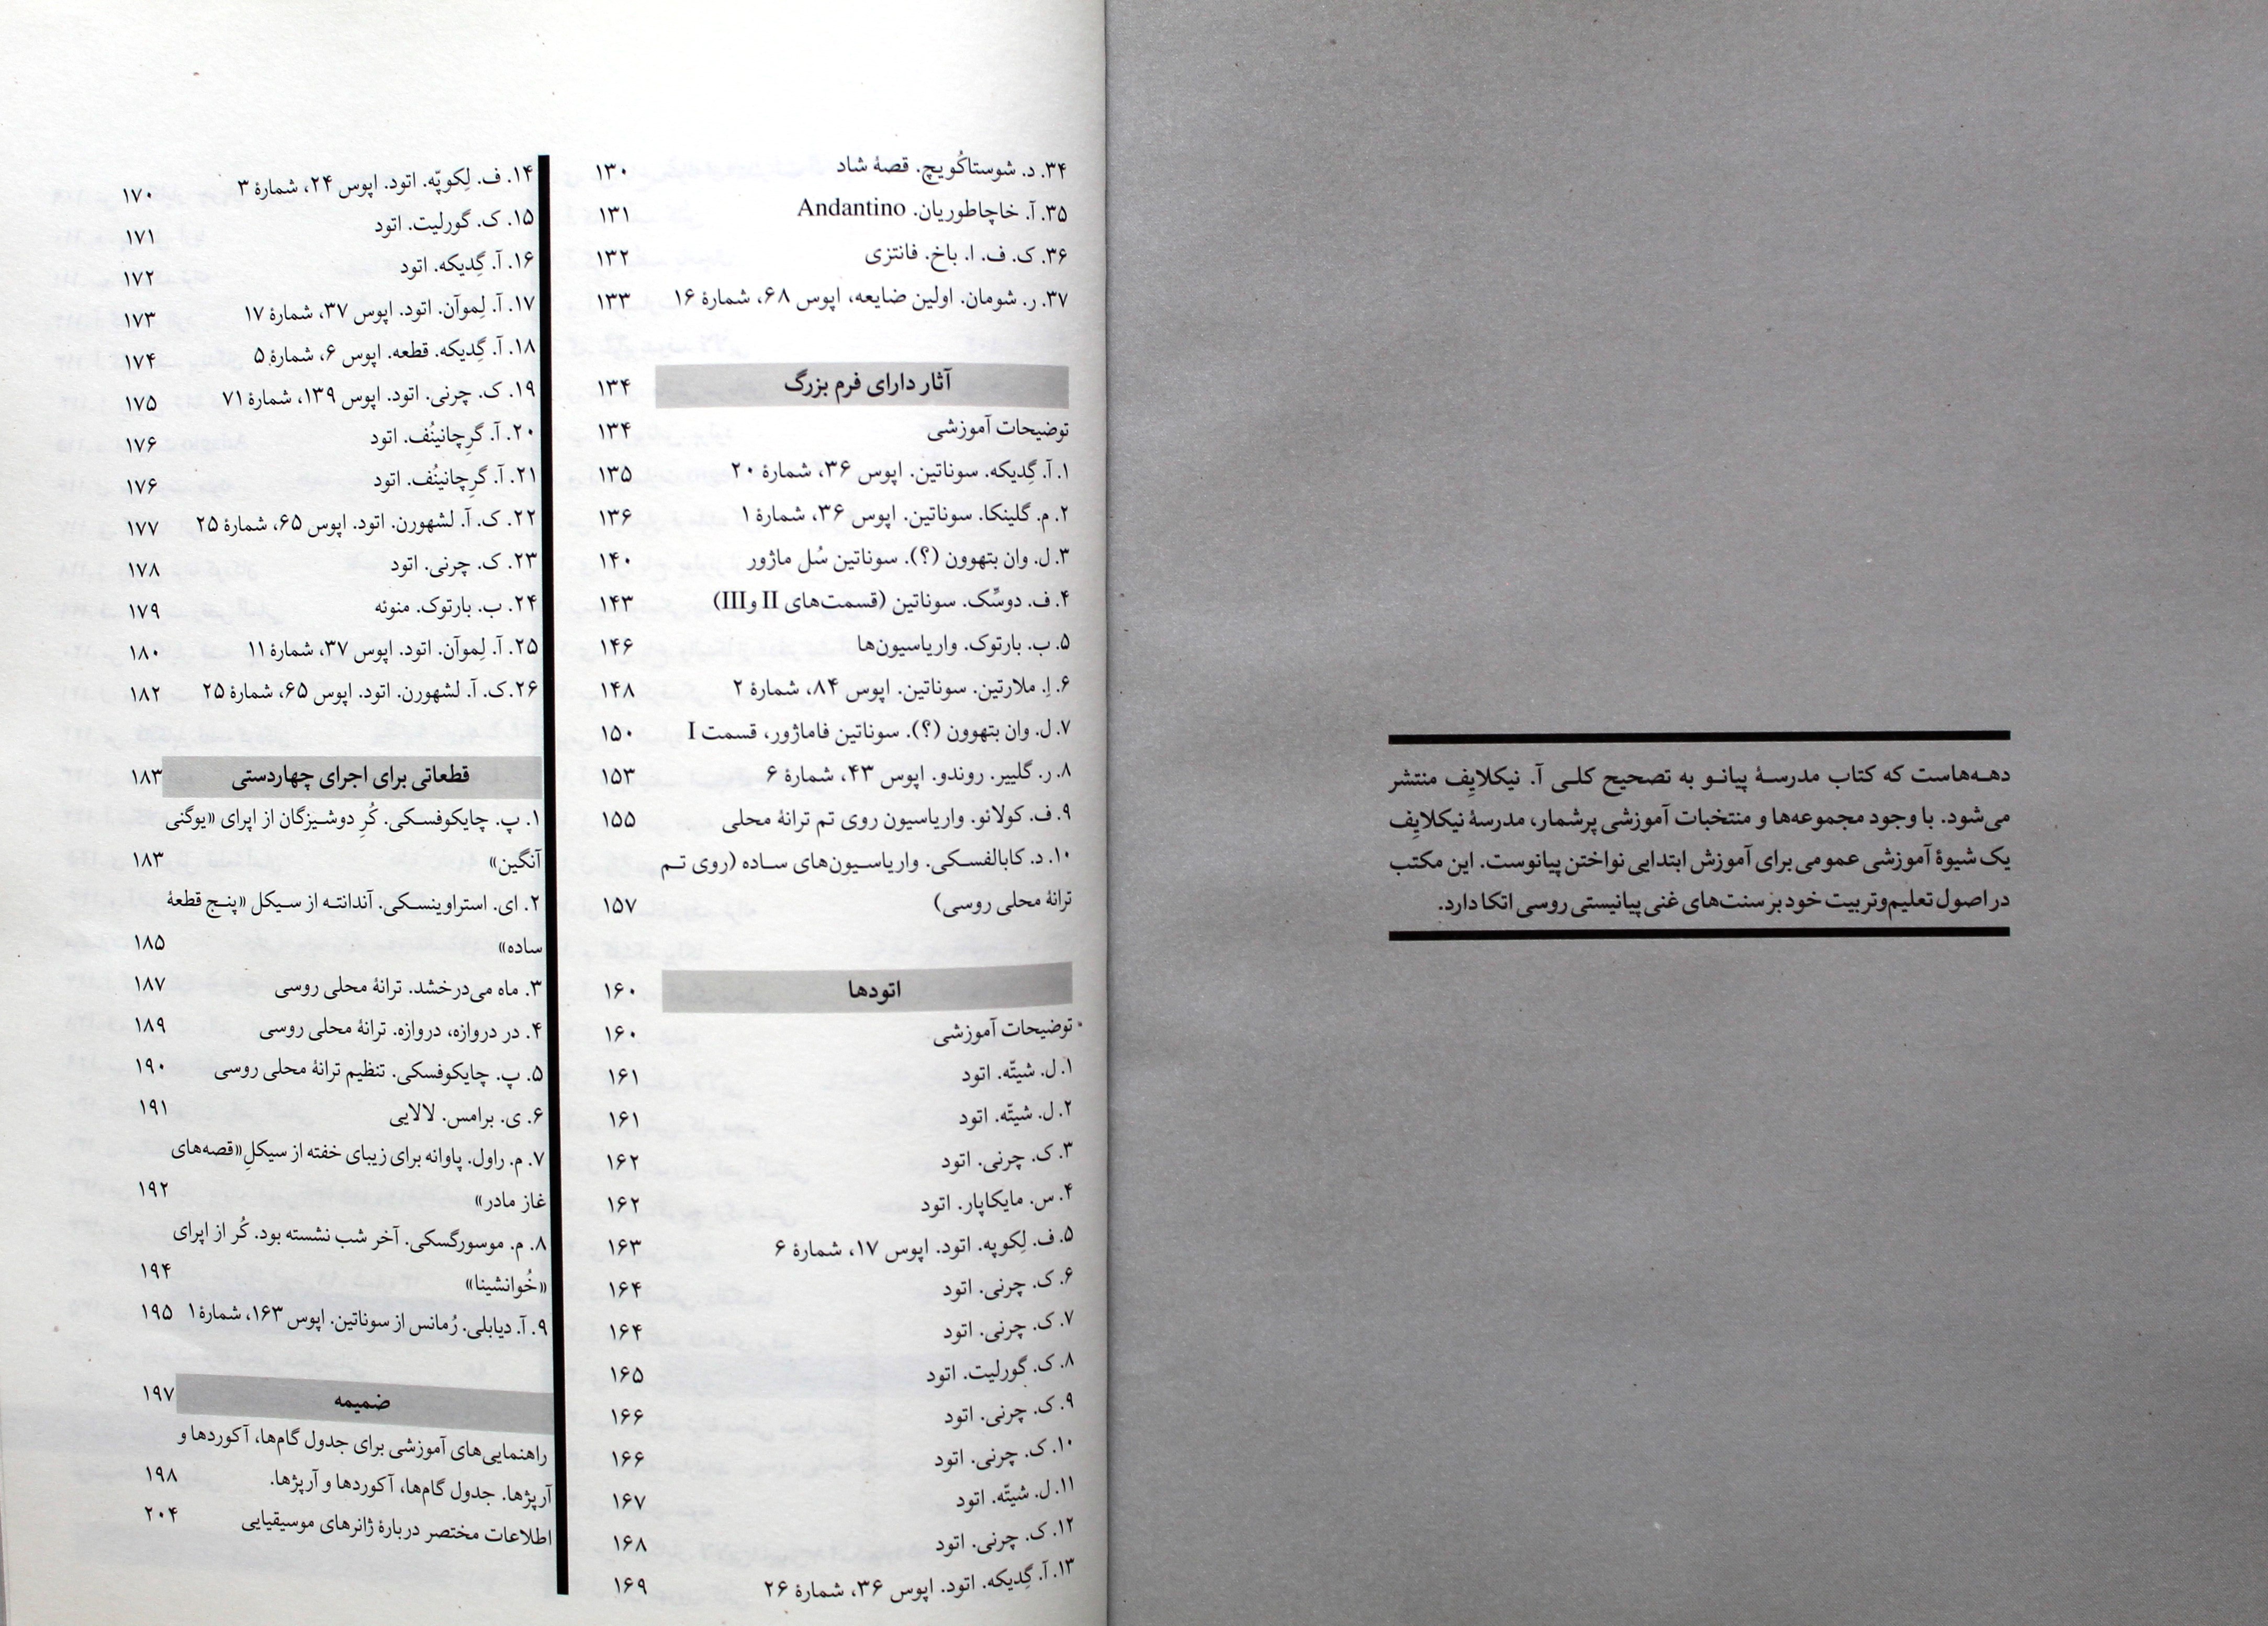 دهه‌هاست که کتاب مدرسهٔ پیانو به تصحیح کلی آ. نیکلایِف منتشر
می‌شود. با وجود مجموعه‌ها و منتخبات آموزشی پرشمار، مدرسهٔ نیکلایِف
یک شیوهٔ آموزشی عمومی برای آموزش ابتدایی نواختن پیانوست. این مکتب
در اصول تعلیم‌وتربیت خود بر سنت‌های غنی پیانیستی روسی اتکا دارد.
۳۴. د. شوستاکُویچ. قصهٔ شاد ۱۳۰
۳۵. آ. خاچاطوریان. Andantino ۱۳۱
۳۶. ک. ف. ا. باخ. فانتزی ۱۳۲
۳۷. ر. شومان. اولین ضایعه، اپوس ۶۸، شمارهٔ ۱۶ ۱۳۳
آثار دارای فرم بزرگ ۱۳۴
توضیحات آموزشی ۱۳۴
۱. آ. گِدیکه. سوناتین. اپوس ۳۶، شمارهٔ ۲۰ ۱۳۵
۲. م. گلینکا. سوناتین. اپوس ۳۶، شمارهٔ ۱ ۱۳۶
۳. ل. وان بتهوون (؟). سوناتین سُل ماژور ۱۴۰
۴. ف. دوسِّک. سوناتین (قسمت‌های II وIII) ۱۴۳
۵. ب. بارتوک. واریاسیون‌ها ۱۴۶
۶. اِ. ملارتین. سوناتین. اپوس ۸۴، شمارهٔ ۲ ۱۴۸
۷. ل. وان بتهوون (؟). سوناتین فاماژور، قسمت I ۱۵۰
۸. ر. گلییر. روندو. اپوس ۴۳، شمارهٔ ۶ ۱۵۳
۹. ف. کولائو. واریاسیون روی تم ترانهٔ محلی ۱۵۵
۱۰. د. کابالفسکی. واریاسیون‌های ساده (روی تم
ترانهٔ محلی روسی) ۱۵۷
اتودها ۱۶۰
توضیحات آموزشی ۱۶۰
۱. ل. شیتّه. اتود ۱۶۱
۲. ل. شیتّه. اتود ۱۶۱
۳. ک. چرنی. اتود ۱۶۲
۴. س. مایکاپار. اتود ۱۶۲
۵. ف. لِکوپه. اتود. اپوس ۱۷، شمارهٔ ۶ ۱۶۳
۶. ک. چرنی. اتود ۱۶۴
۷. ک. چرنی. اتود ۱۶۴
۸. ک. گورلیت. اتود ۱۶۵
۹. ک. چرنی. اتود ۱۶۶
۱۰. ک. چرنی. اتود ۱۶۶
۱۱. ل. شیتّه. اتود ۱۶۷
۱۲. ک. چرنی. اتود ۱۶۸
۱۳. آ. گِدیکه. اتود. اپوس ۳۶، شمارهٔ ۲۶ ۱۶۹
۱۴. ف. لِکوپّه. اتود. اپوس ۲۴، شمارهٔ ۳ ۱۷۰
۱۵. ک. گورلیت. اتود ۱۷۱
۱۶. آ. گِدیکه. اتود ۱۷۲
۱۷. آ. لِموآن. اتود. اپوس ۳۷، شمارهٔ ۱۷ ۱۷۳
۱۸. آ. گِدیکه. قطعه. اپوس ۶، شمارهٔ ۵ ۱۷۴
۱۹. ک. چرنی. اتود. اپوس ۱۳۹، شمارهٔ ۷۱ ۱۷۵
۲۰. آ. گرِچانینُف. اتود ۱۷۶
۲۱. آ. گرِچانینُف. اتود ۱۷۶
۲۲. ک. آ. لشهورن. اتود. اپوس ۶۵، شمارهٔ ۲۵ ۱۷۷
۲۳. ک. چرنی. اتود ۱۷۸
۲۴. ب. بارتوک. منوئه ۱۷۹
۲۵. آ. لِموآن. اتود. اپوس ۳۷، شمارهٔ ۱۱ ۱۸۰
۲۶. ک. آ. لشهورن. اتود. اپوس ۶۵، شمارهٔ ۲۵ ۱۸۲
قطعاتی برای اجرای چهاردستی ۱۸۳
۱. پ. چایکوفسکی. کُرِ دوشیزگان از اپرای «یوگنی
آنگین» ۱۸۳
۲. ای. استراوینسکی. آندانته از سیکل «پنج قطعهٔ
ساده» ۱۸۵
۳. ماه می‌درخشد. ترانهٔ محلی روسی ۱۸۷
۴. در دروازه، دروازه. ترانهٔ محلی روسی ۱۸۹
۵. پ. چایکوفسکی. تنظیم ترانهٔ محلی روسی ۱۹۰
۶. ی. برامس. لالایی ۱۹۱
۷. م. راول. پاوانه برای زیبای خفته از سیکلِ «قصه‌های
غاز مادر» ۱۹۲
۸. م. موسورگسکی. آخر شب نشسته بود. کُر از اپرای
«خُوانشینا» ۱۹۴
۹. آ. دیابلی. رُمانس از سوناتین. اپوس ۱۶۳، شمارهٔ ۱ ۱۹۵
ضمیمه ۱۹۷
راهنمایی‌های آموزشی برای جدول گام‌ها، آکوردها و
آرپژها. جدول گام‌ها، آکوردها و آرپژها. ۱۹۸
اطلاعات مختصر دربارهٔ ژانرهای موسیقیایی ۲۰۴